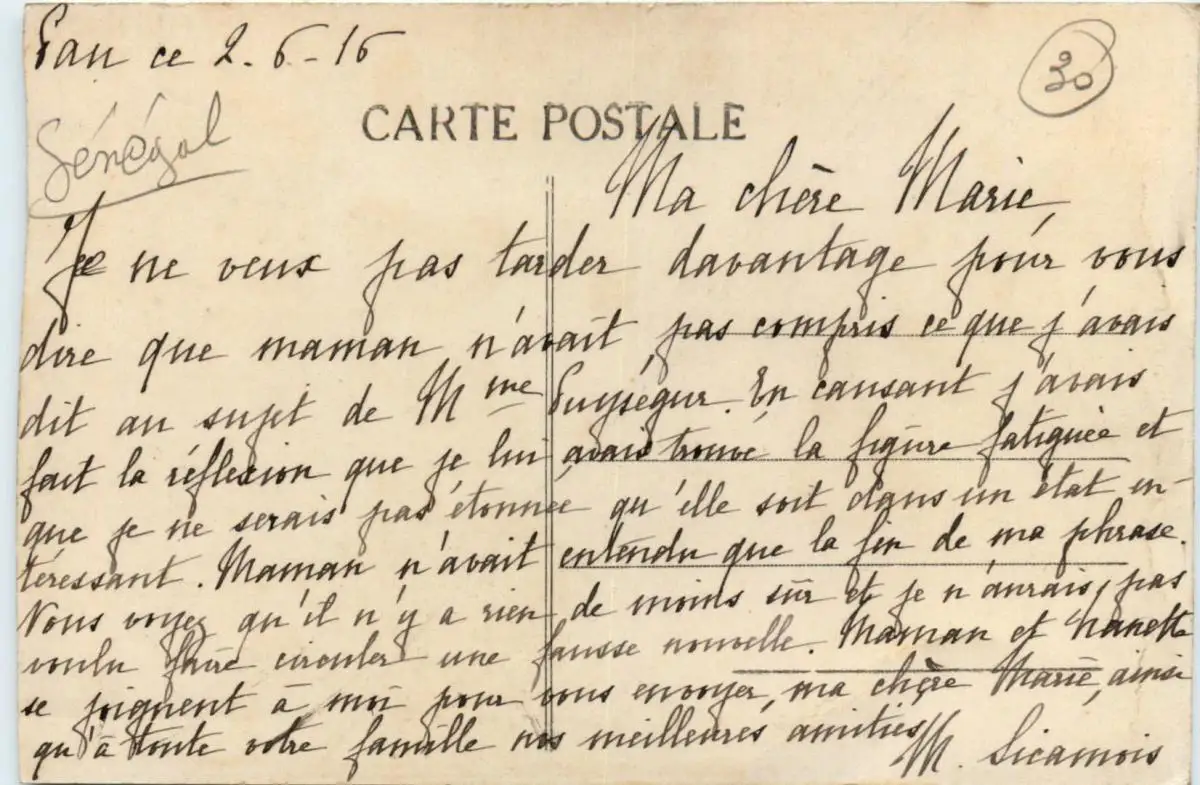 Pau ce 2-6-16
30
Sénégal
CARTE POSTALE
Ma chère Marie,
Je ne veux pas tarder davantage pour vous
dire que maman n'avait pas compris ce que j'avais
dit au sujet de Mme Puységur. En causant j'avais
fait la réflexion que je lui avais trouvé la figure fatiguée et
que je ne serais pas étonnée qu'elle soit dans un état in-
téressant. Maman n'avait entendu que la fin de ma phrase.
Vous voyez qu'il n'y a rien de moins sûr et je n'aurais pas
voulu faire circuler une fausse nouvelle. Maman et Nanette
se joignent à moi pour vous envoyer, ma chère Marie, ainsi
qu'à toute votre famille nos meilleures amitiés
M. Sicamois